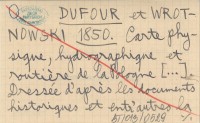 Q DUFOUR et WROT-
NOWSKI 1850. Carte phy-
sique, hydrographique et
routière de la Pologne [...]
Dressée d'après les documents
historiques et entr'autres la
BT/013/0989